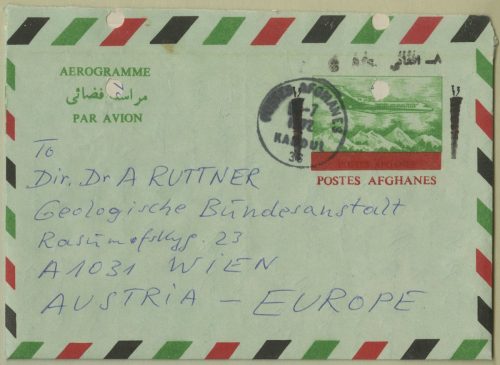 AEROGRAMME
مراسله فضائی
PAR AVION
POSTES AFGHANES
KABOUL
POSTES AFGHANES
To
Dir. Dr A RUTTNER
Geologische Bundesanstalt
Rasumofskyg. 23
A 1031 WIEN
AUSTRIA – EUROPE